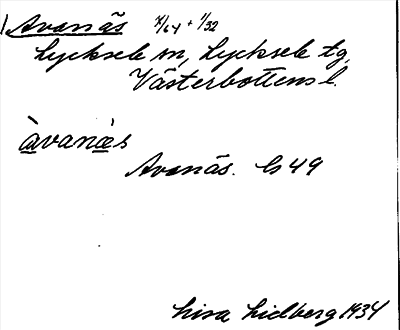 Avanäs ¼/64 + 1/32
Lycksele sn, Lycksele tg,
Västerbottens l.
àvanæ̀s
Avanäs. Gs 49
Lisa Lidberg 1934